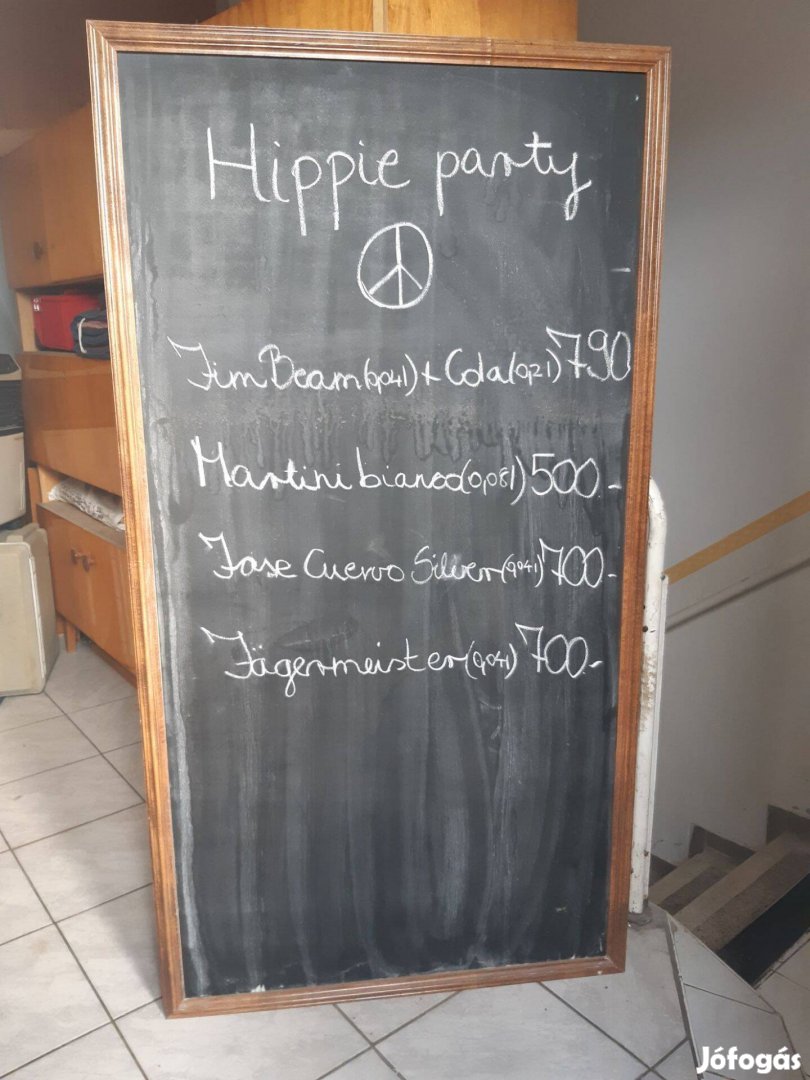 Hippie party
Jim Beam(0,04l) + Cola(0,2l) 790
Martini bianco(0,08l) 500.-
Jose Cuervo Silver(0,04l) 700.-
Jägermeister(0,04l) 700.-
Jófogás